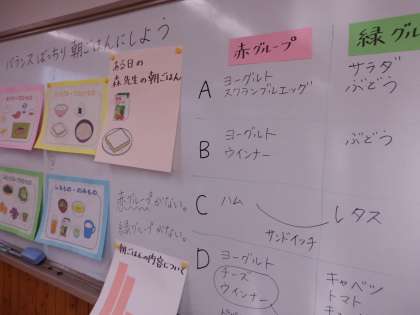 バランスばっちり朝ごはんにしよう
ある日の
森先生の朝ごはん
赤グループがない。
緑グループがない。
朝ごはんの内容について
赤グループ
緑グル
A
ヨーグルト
スクランブルエッグ
サラダ
ぶどう
B
ヨーグルト
ウインナー
ぶどう
C
ハム
レタス
サンドイッチ
D
ヨーグルト
チーズ
ウインナー
キャベツ
トマト